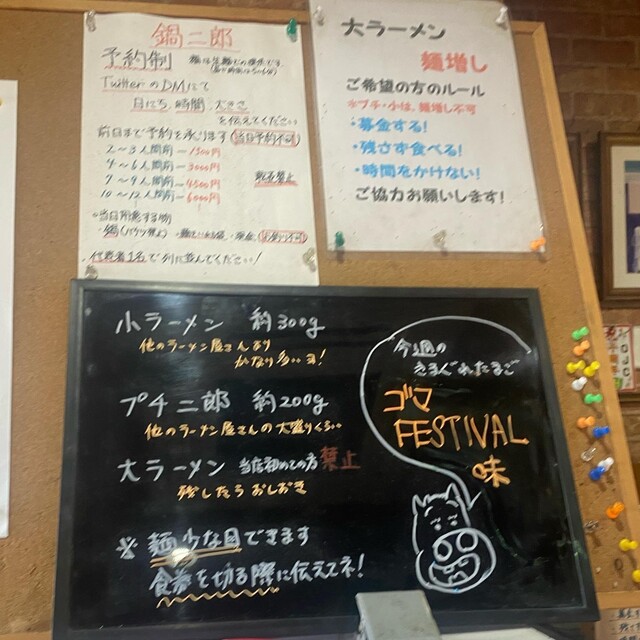 鍋二郎
予約制
TwitterのDMにて
日にち、時間、大きさ
を伝えてください
前日まで予約を承ります(当日予約不可)
2〜3人間前―1500円
4〜6人間前―3000円
7〜9人間前―4500円
10〜12人間前―6000円
転売禁止
・当日用意する物
・代表者1名で列に並んでください!
大ラーメン
麺増し
ご希望の方のルール
※プチ・小は、麺増し不可
・募金する!
・残さず食べる!
・時間をかけない!
ご協力お願いします!
小ラーメン 約300g
他のラーメン屋さんより
かなり多いヨ!
プチ二郎 約200g
他のラーメン屋さんの大盛りくらい
大ラーメン 当店初めての方禁止
残したらおしおき
※ 麺少な目できます
食券を切る際に伝えてネ!
今週の
きまぐれたまご
ゴマ
FESTIVAL
味